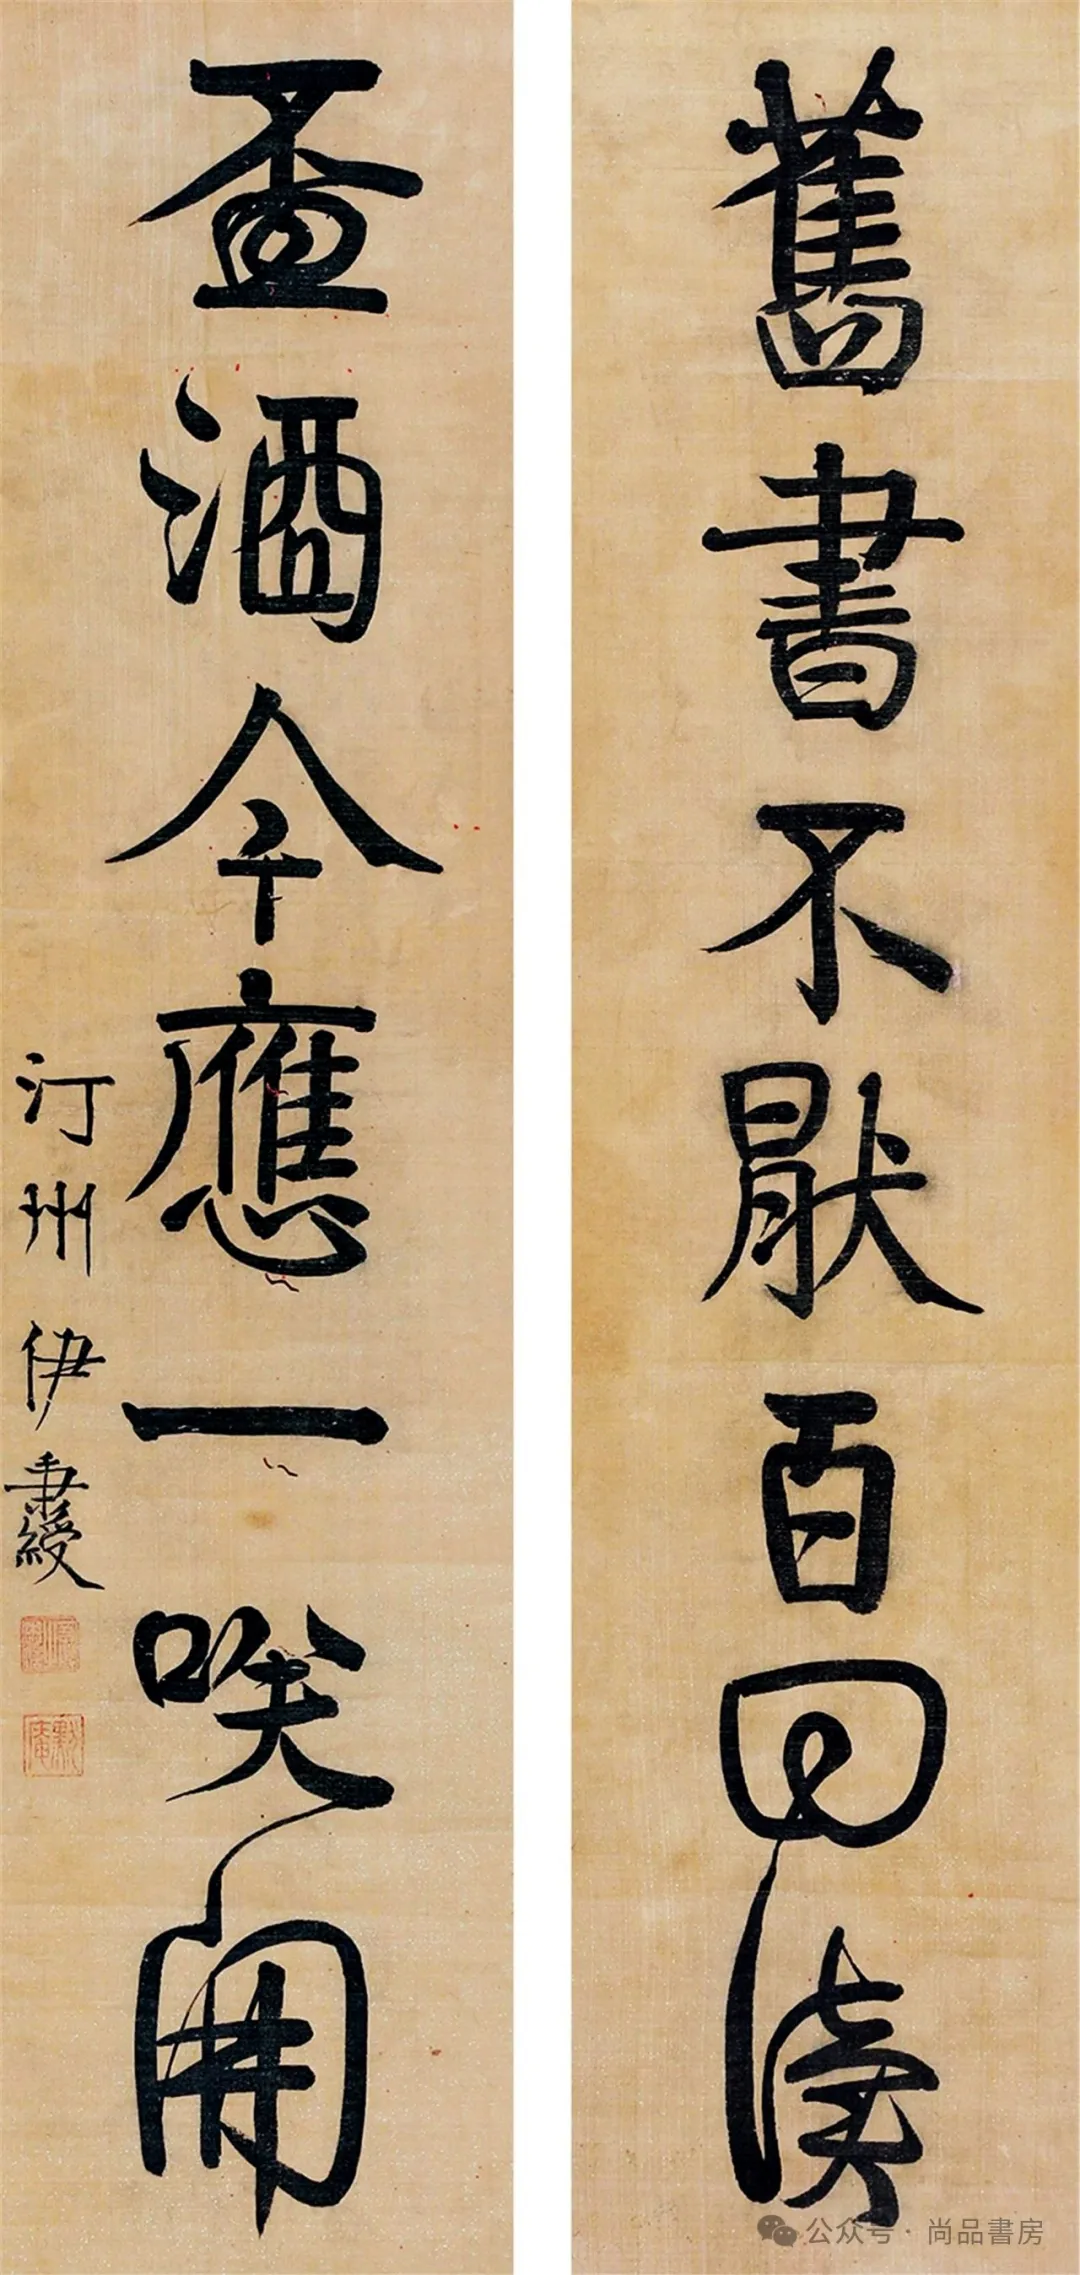 舊書不猒百回讀
盃酒今應一咲開
汀州伊秉綬
默庵
公众号 · 尚品書房